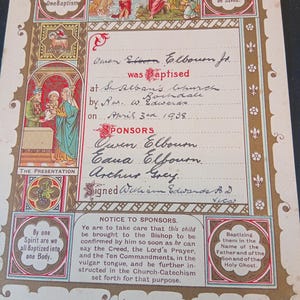 One Baptism
Owen Elson Elbourn Jr.
was Baptised
at St. Alban's Church
Rochdale
by Rev. W. Edwards
on April 3rd 1938
SPONSORS
Owen Elbourn
Edna Elbourn.
Archie Grey.
Signed William Edwards B.D
Vicar
THE PRESENTATION
By one
Spirit are we
all Baptized into
one Body.
NOTICE TO SPONSORS.
Ye are to take care that this child
be brought to the Bishop to be
confirmed by him so soon as he can
say the Creed, the Lord's Prayer,
and the Ten Commandments, in the
vulgar tongue, and be further in-
structed in the Church-Catechism
set forth for that purpose.
Baptizing
them in the
Name of the
Father and of the
Son and of the
Holy Ghost.